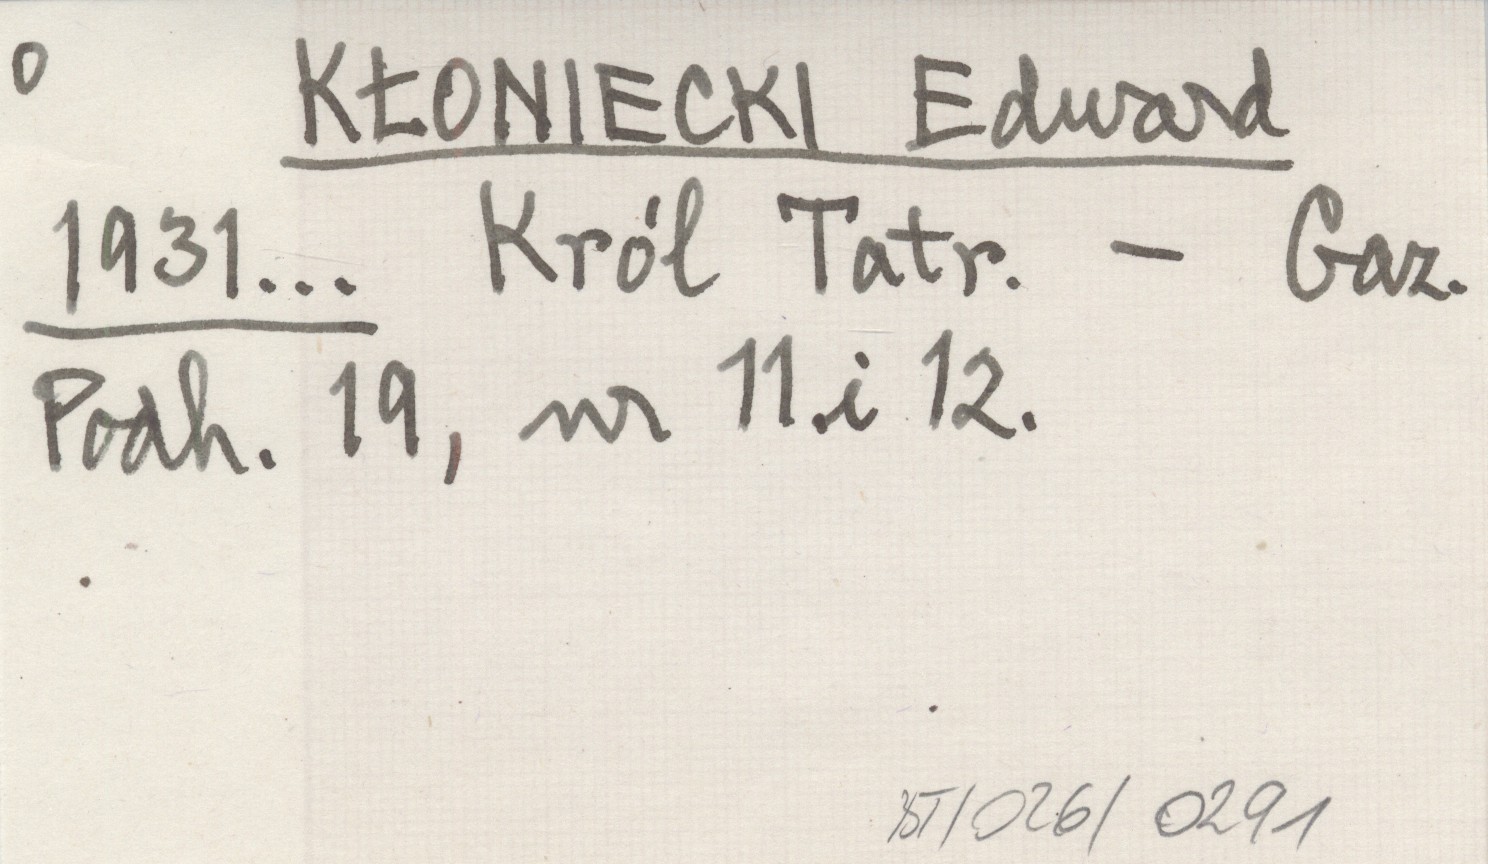 o KŁONIECKI Edward
1931... Król Tatr. — Gaz.
Podh. 19, nr 11 i 12.
/026/ 0291